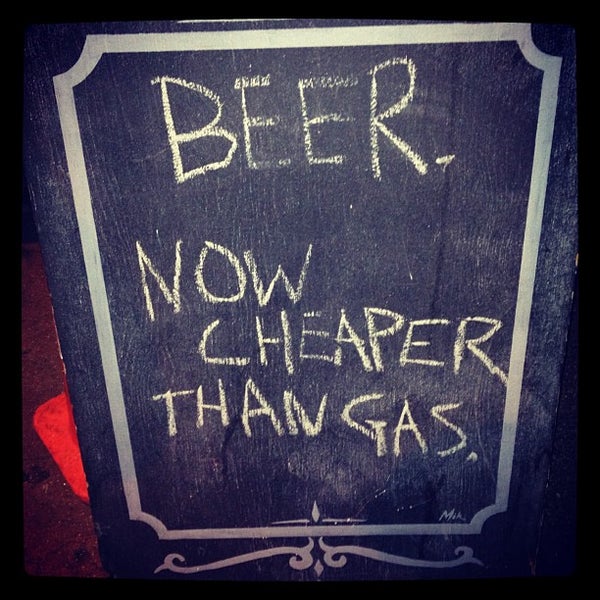 BEER.
NOW
CHEAPER
THAN GAS.